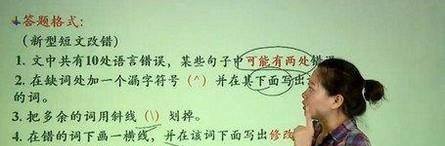 答题格式:
(新型短文改错)
1. 文中共有10处语言错误，某些句子中可能有两处错
2. 在缺词处加一个漏字符号（^）并在其下面写出
的词。
3. 把多余的词用斜线（\）划掉。
4. 在错的词下画一横线，并在该词下面写出修改